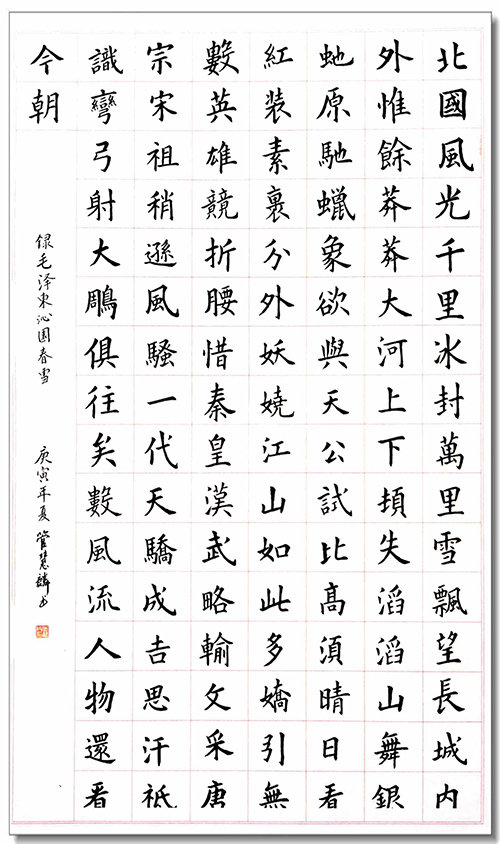 北國風光千里冰封萬里雪飄望長城内
外惟餘莽莽大河上下頓失滔滔山舞銀
虵原馳蠟象欲與天公試比高須晴日看
紅装素裹分外妖嬈江山如此多嬌引無
數英雄競折腰惜秦皇漢武略輸文采唐
宗宋祖稍遜風騷一代天驕成吉思汗祇
識彎弓射大鵰俱往矣數風流人物還看
今朝
録毛泽東沁園春雪
庚寅年夏管慧麟书